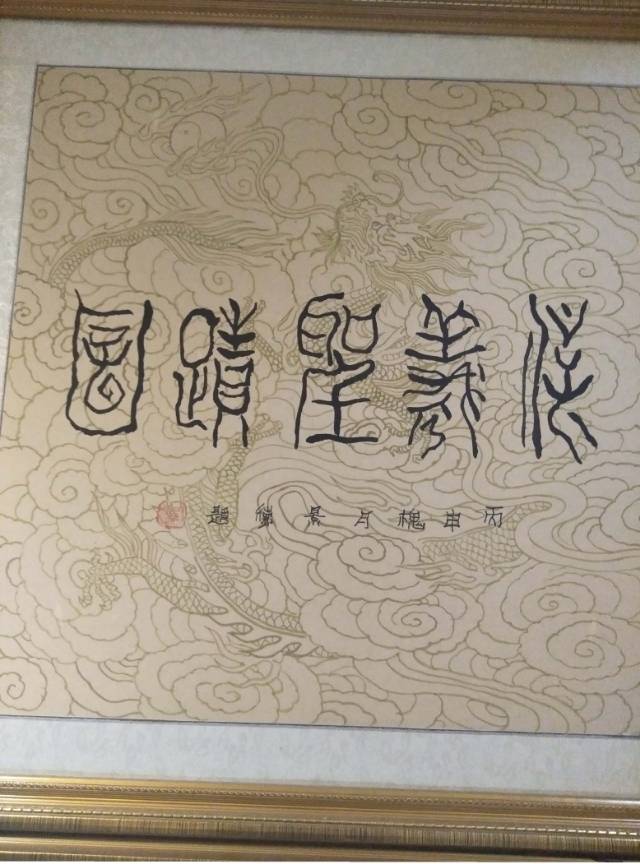 伏羲聖蹟圖
丙申槐月景題